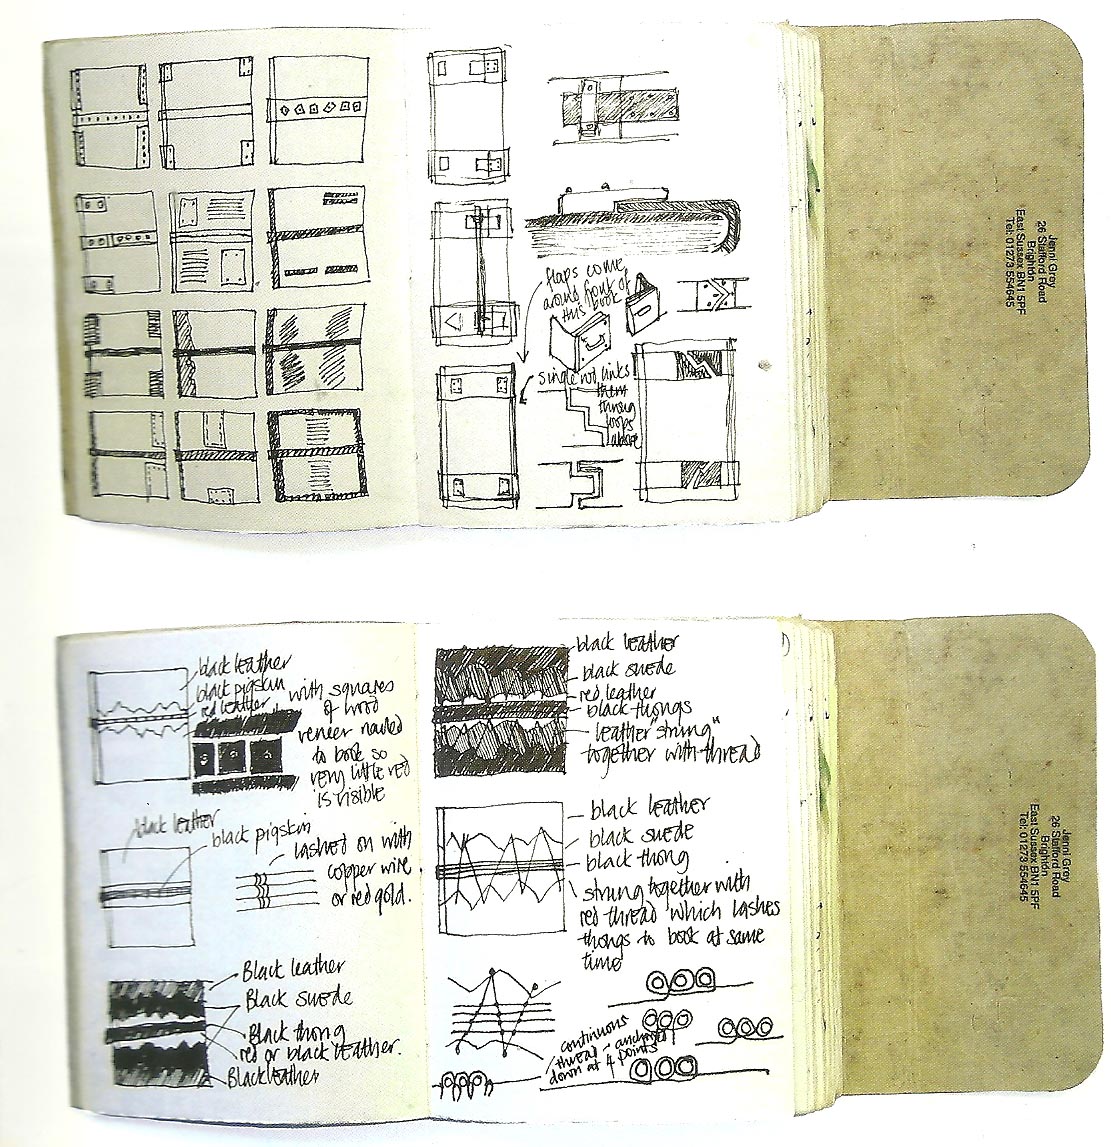 flaps come
around front of
this book
single rod links
them
through
loops
above
Jenni Grey
26 Stafford Road
Brighton
East Sussex BN1 5PF
Tel: 01273 554645
black leather
black pigskin
red leather
with squares
of wood
veneer nailed
to book so
very little red
is visible
black leather
black pigskin
lashed on with
copper wire
or red gold.
Black leather
Black suede
Black thong
red or black leather.
Black leather
black leather
black suede
red leather
black thongs
leather "strung"
together with thread
black leather
black suede
black thong
strung together with
red thread which lashes
thongs to book at same
time
continuous
thread - anchored
down at 4 points
Jenni Grey
26 Stafford Road
Brighton
East Sussex BN1 5PF
Tel: 01273 554645